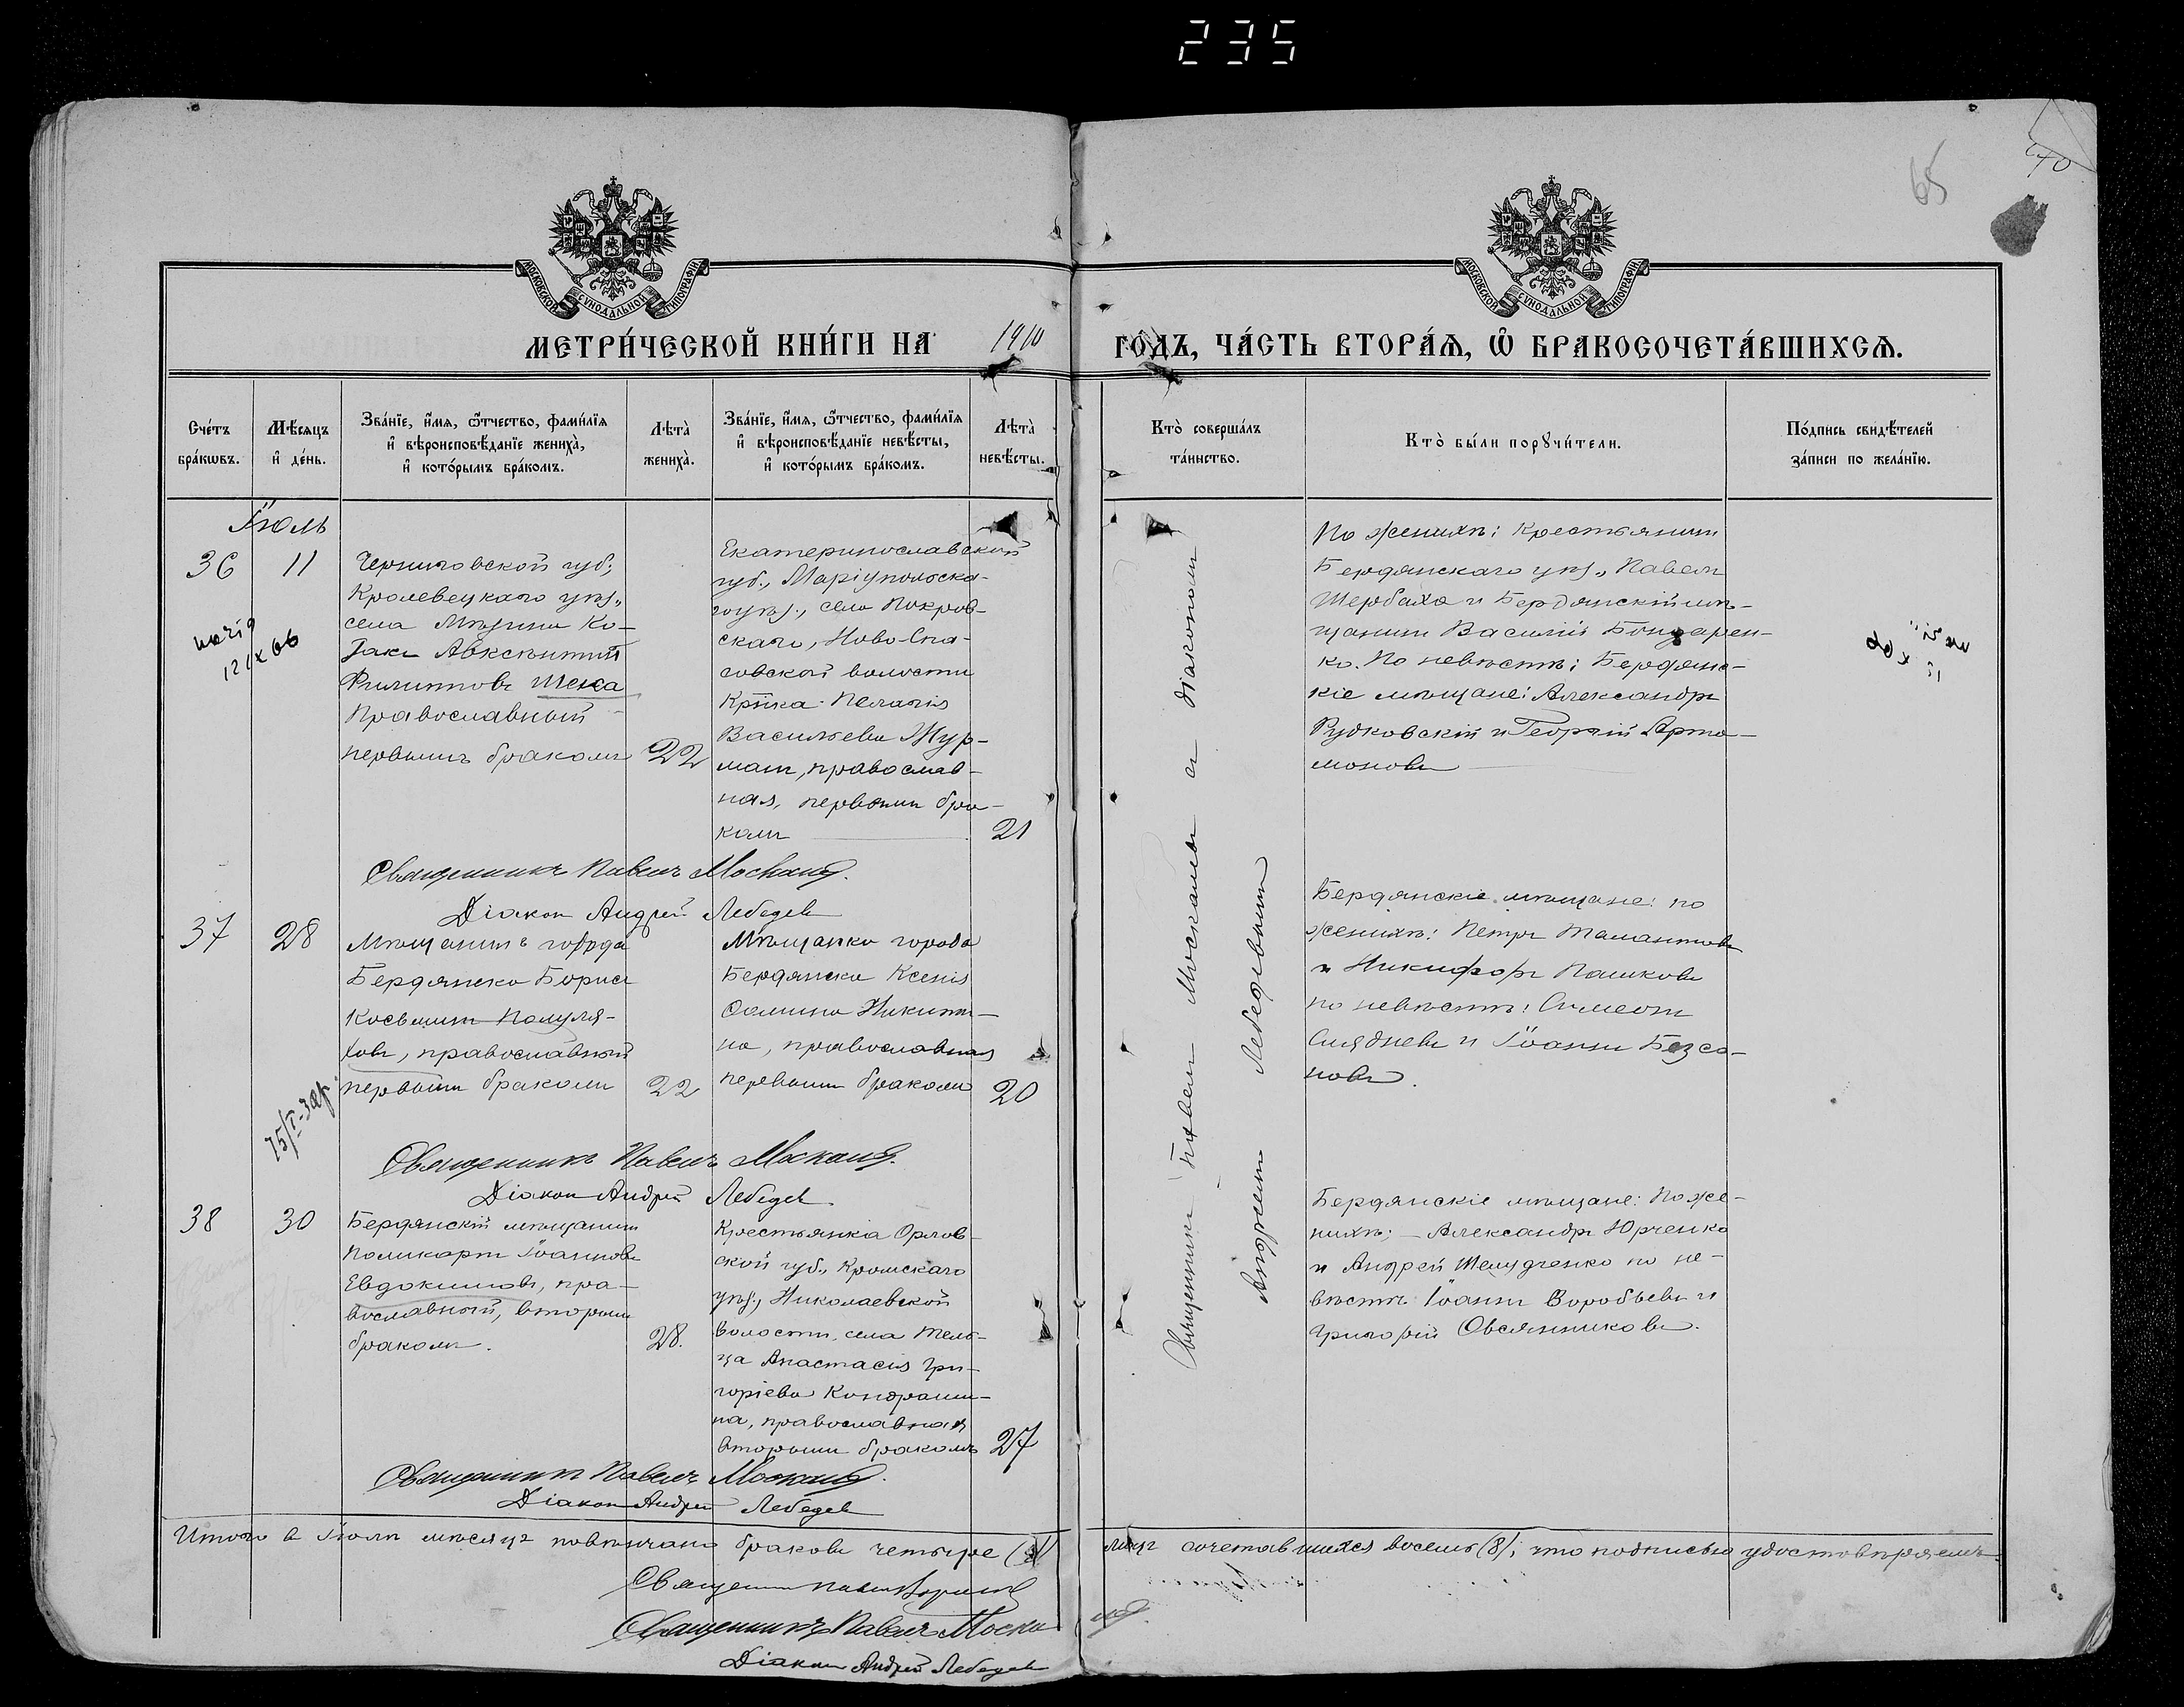 235
65
40
МОСКОВСКОЙ СУНОДАЛЬНОЙ ТИПОГРАФІИ
МОСКОВСКОЙ СУНОДАЛЬНОЙ ТИПОГРАФІИ
МЕТРИ́ЧЕСКОЙ КНИ́ГИ НА 1910 ГОДЪ, ЧА́СТЬ ВТОРА́Я, Ѡ БРАКОСОЧЕТА́ВШИХСЯ.
Сче́тъ
бра́кѡвъ.
Мѣ́сяцъ
и҆ де́нь.
Зва́нїе, и҆́мя, ѻ҆́тчество, фами́лїя
и҆ вѣроисповѣ́данїе жениха̀,
и҆ кото́рымъ бра́комъ.
Лѣта̀
жениха̀.
Зва́нїе, и҆́мя, ѻ҆́тчество, фами́лїя
и҆ вѣроисповѣ́данїе невѣ́сты,
и҆ кото́рымъ бра́комъ.
Лѣта̀
невѣ́сты.
Кто̀ соверша́лъ
та́инство.
Кто̀ бы́ли порꙋчи́тели.
По́дпись свидѣ́телей
за́писи по жела́нїю.
Іюль
36
11
Черниговской губ.,
Кролевецкаго уѣз.,
села Мѣзина Ко-
закъ Авксентій
Филипповъ Шека
Православный
первымъ бракомъ
22
Екатеринославской
губ., Маріупольска-
го уѣз., села Покров-
скаго, Ново-Спа-
совской волости
Кр̃нка Пелагія
Васильева Жур-
, православ-
ная, первымъ бра-
комъ
21
Священникъ Павелъ Москалъ
Діаконъ Андрей Лебедевъ
По женихѣ: крестьянинъ
Бердянскаго уѣз., Павелъ
Щербаха и Бердянскій мѣ-
щанинъ Василій Бондарен-
ко. По невѣстѣ: Бердянс-
кіе мѣщане: Александръ
Рудковскій и Георгій Арто-
моновъ
37
28
Мѣщанинъ города
Бердянска Борисъ
Косьминъ
, православный
первымъ бракомъ
22
Мѣщанка города
Бердянска Ксенія
Ѳомина Никити-
на, православная
первымъ бракомъ
20
Священникъ Павелъ Москалъ
Діаконъ Андрей Лебедевъ
Бердянскіе мѣщане: по
женихѣ: Петръ Талантовъ
и Никифоръ Пашковъ
по невѣстѣ: Симеонъ
Слядневъ и Іоаннъ Безсо-
новъ.
38
30
Бердянскій мѣщанинъ
Поликарпъ Іоанновъ
Евдокимовъ, пра-
вославный, вторымъ
бракомъ.
28.
Крестьянка Орлов-
ской губ., Кромскаго
уѣз., Николаевской
волости, села Тель-
ча Анастасія Гри-
горіева Кондраши-
на, православная
вторымъ бракомъ
27
Священникъ Павелъ Москалъ
Діаконъ Андрей Лебедевъ
Бердянскіе мѣщане: По же-
нихѣ: Александръ Юрченко
и Андрей Шелудченко по не-
вѣстѣ Іоаннъ Воробьевъ и
Григорій Овсянниковъ.
Священникъ Павелъ Москалъ съ діакономъ
Андреемъ Лебедевымъ
Итого въ Іюлѣ мѣсяцѣ повѣнчано браковъ четыре (4) лицъ сочетавшихся восемь (8), что подписью удостовѣряемъ.
Священникъ Павелъ
Священникъ Павелъ Москалъ
Діаконъ Андрей Лебедевъ